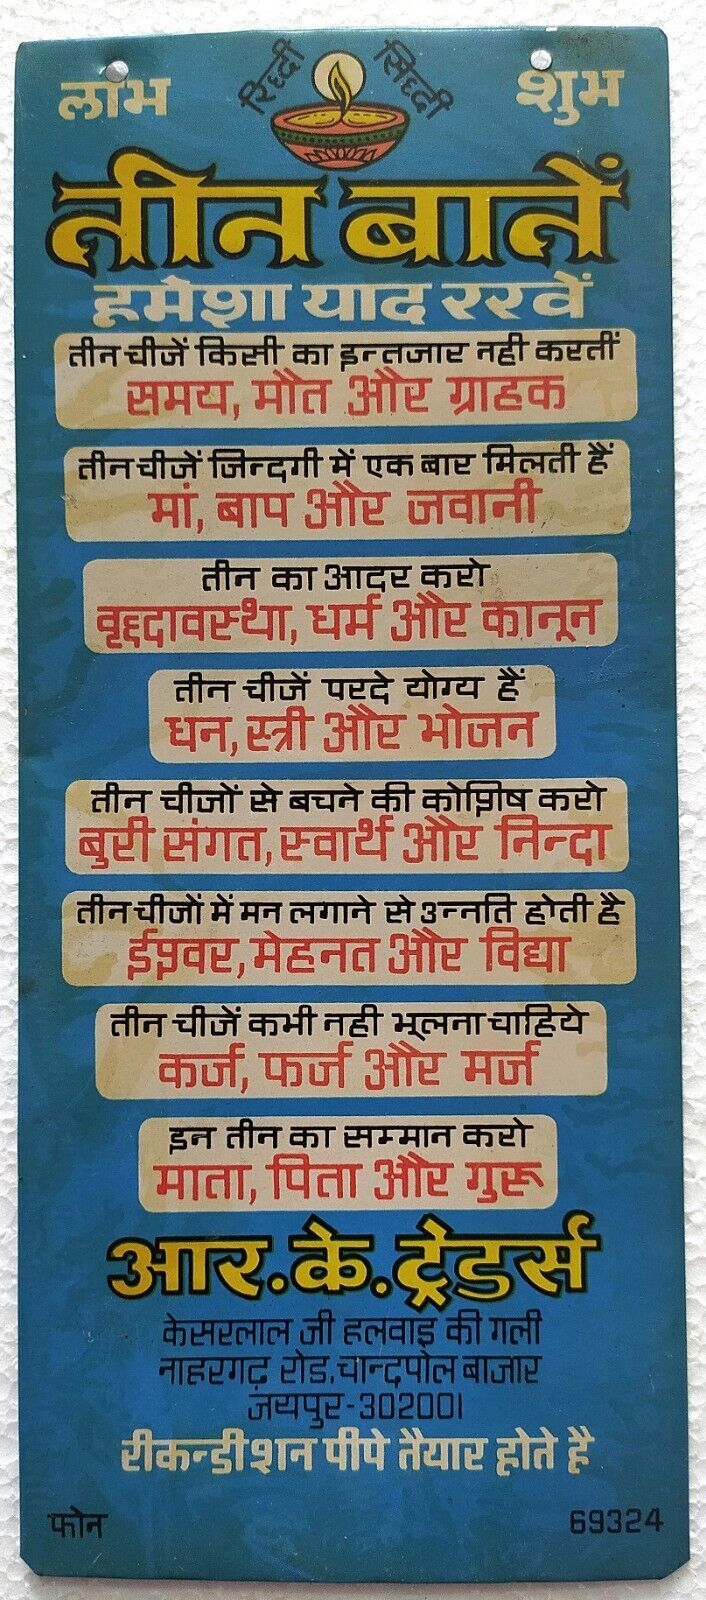 लाभ
रिध्दी
सिध्दी
शुभ
तीन बातें
हमेशा याद रखें
तीन चीजें किसी का इन्तजार नही करतीं
समय, मौत और ग्राहक
तीन चीजें जिन्दगी में एक बार मिलती हैं
मां, बाप और जवानी
तीन का आदर करो
वृद्दावस्था, धर्म और कानून
तीन चीजें परदे योग्य हैं
धन, स्त्री और भोजन
तीन चीजों से बचने की कोशिष करो
बुरी संगत, स्वार्थ और निन्दा
तीन चीजों में मन लगाने से उन्नति होती है
ईश्वर, मेहनत और विद्या
तीन चीजें कभी नही भूलना चाहिये
कर्ज, फर्ज और मर्ज
इन तीन का सम्मान करो
माता, पिता और गुरू
आर. के. ट्रेडर्स
केसरलाल जी हलवाइ की गली
नाहरगढ़ रोड, चान्दपोल बाजार
जयपुर-302001
रीकन्डीशन पीपे तैयार होते है
फोन 69324